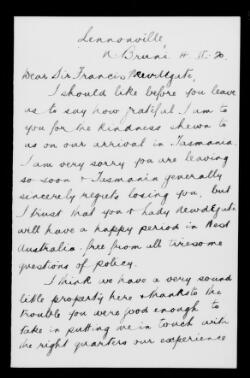 Lennonville,
N. Bruni 4.II.20.
Dear Sir Francis Newdegate,
I should like before you leave
us to say how grateful I am to
you for the kindness shewn to
us on our arrival in Tasmania.
I am very sorry you are leaving
so soon & Tasmania generally
sincerely regrets losing you, but
I trust that you & Lady Newdegate
will have a happy period in West
Australia, free from all tiresome
questions of policy.
I think we have a very sound
little property here & thanks to the
trouble you were good enough to
take in putting me in touch with
the right quarters our experience